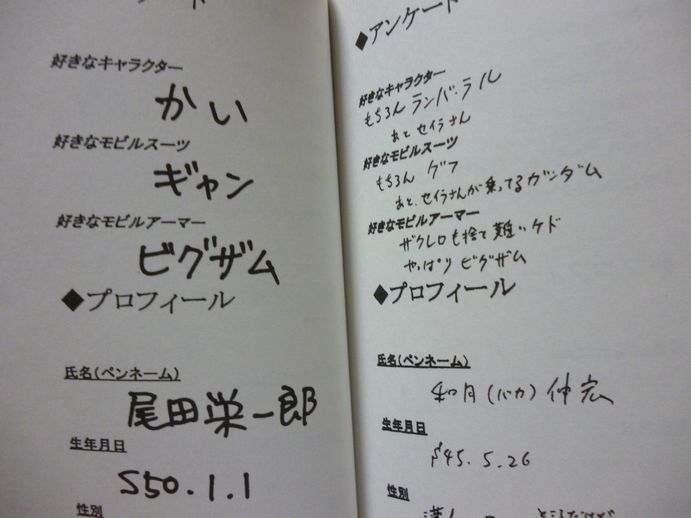 好きなキャラクター
かい
好きなモビルスーツ
ギャン
好きなモビルアーマー
ビグザム
◆プロフィール
氏名(ペンネーム)
尾田栄一郎
生年月日
S50.1.1
性別
◆アンケート
好きなキャラクター
もちろん ランバ・ラル
あと セイラさん
好きなモビルスーツ
もちろん グフ
あと、セイラさんが乗ってるガンダム
好きなモビルアーマー
ザクレロも捨て難いケド
やっぱり ビグザム
◆プロフィール
氏名(ペンネーム)
和月(バカ)伸宏
生年月日
S45.5.26
性別
ところだけど